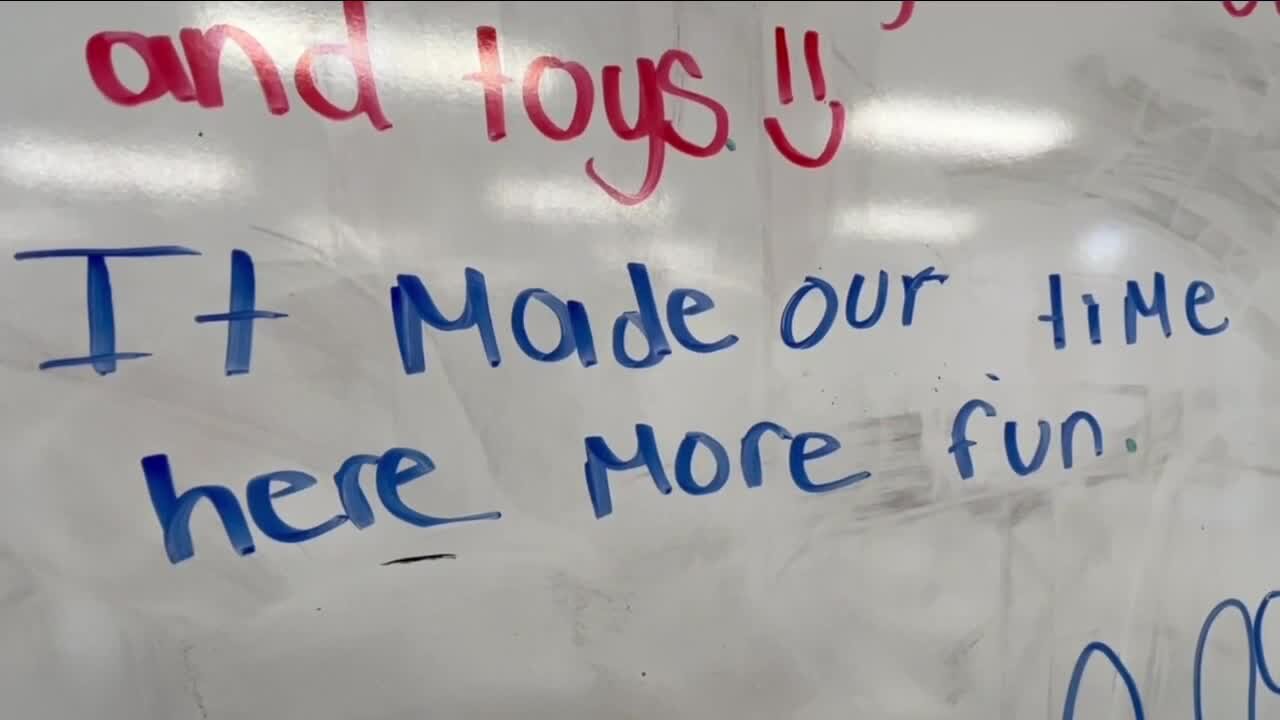 and toys.
It Made our tiMe
here More fun.